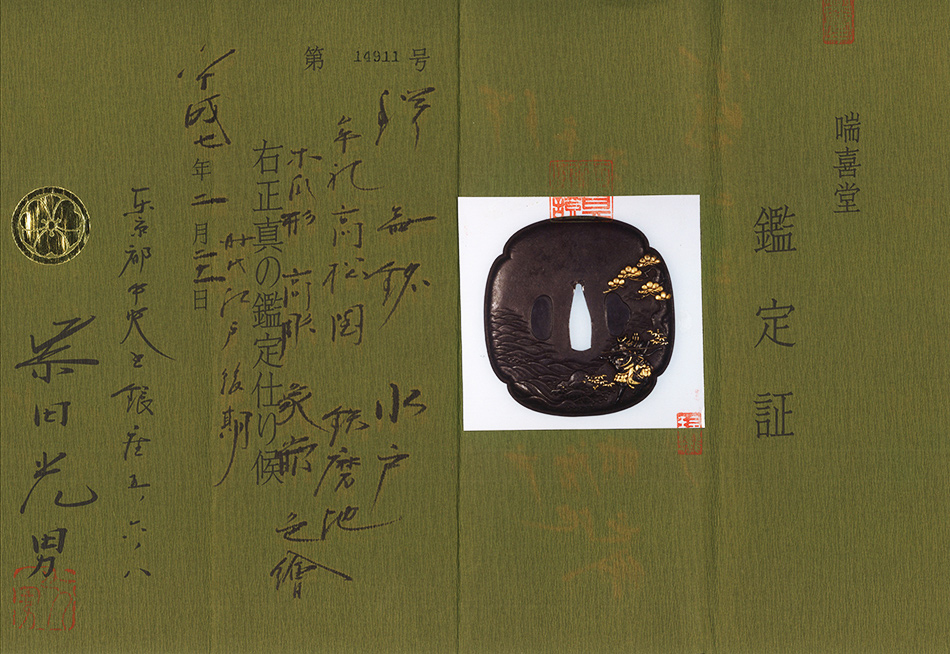 喘喜堂
鑑定証
第 14911 号
鍔 無銘 水戸
牟礼高松図 鉄磨地
木瓜形 高彫 象嵌 色繪
時代江戸後期
右正真の鑑定仕り候
平成七年二月 日
東京都中央区銀座五ノ六ノ八
柴田光男